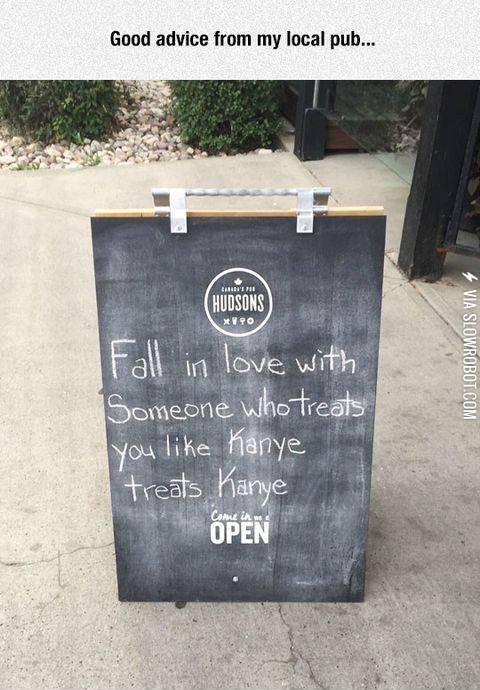 Good advice from my local pub...
CANADA'S PUB
HUDSONS
Fall in love with
Someone who treats
you like Kanye
treats Kanye
Come in we're
OPEN
VIA SLOWROBOT.COM